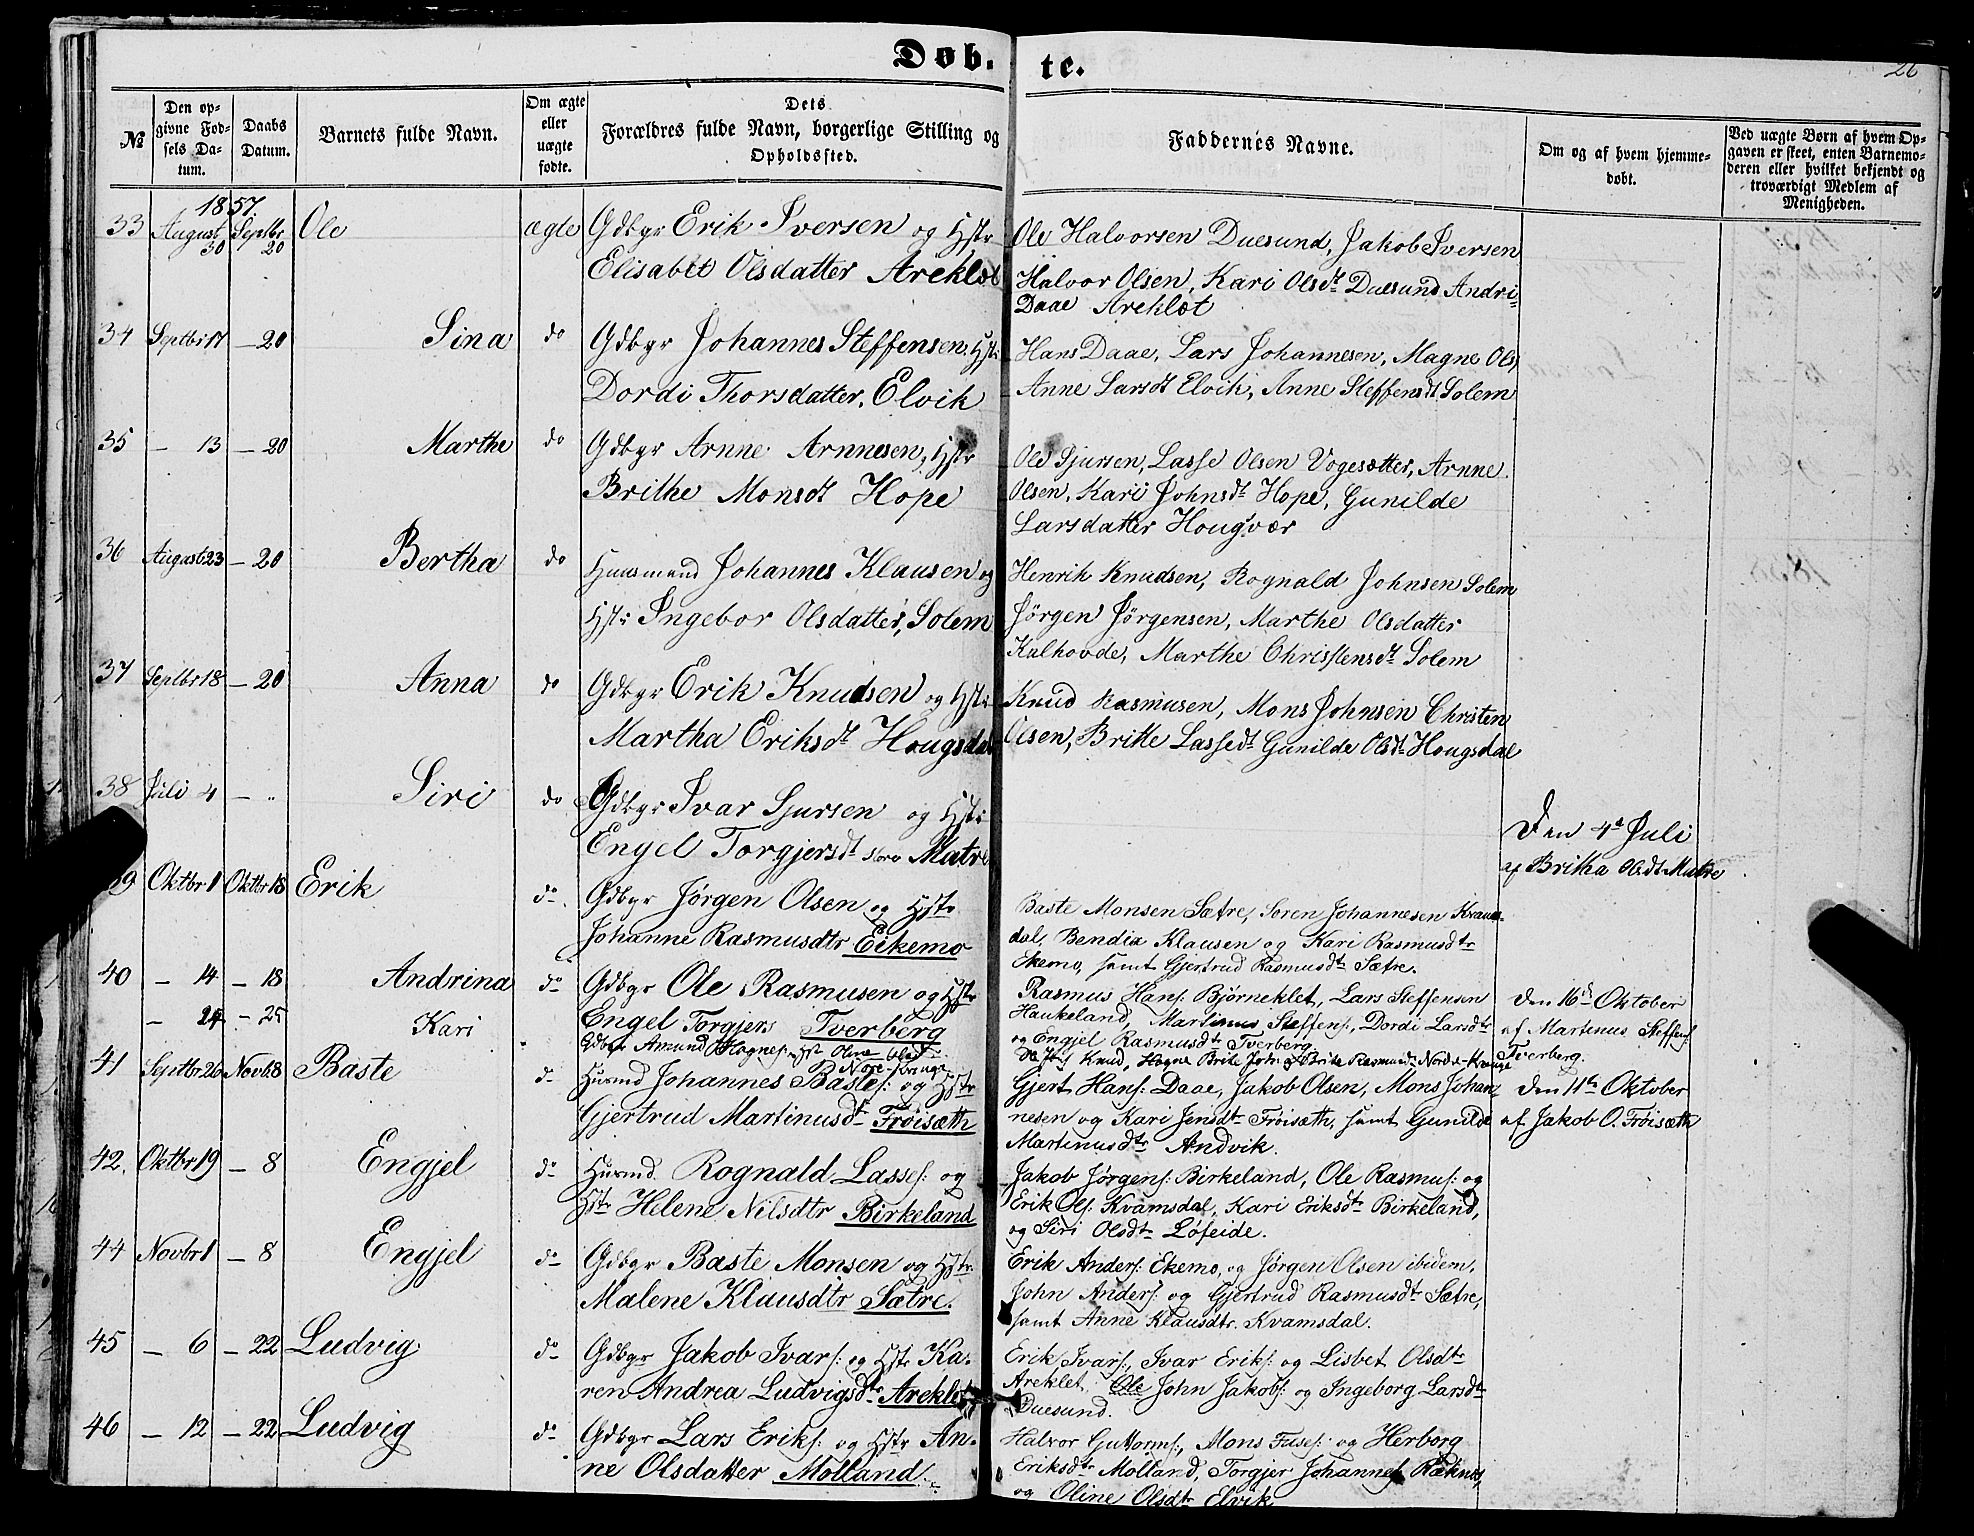 Døb-
te.
26
№
Den op-
givne Fød-
sels Da-
tum.
Daabs
Datum.
Barnets fulde Navn.
Om ægte
eller
uægte
fødte.
Dets
Forældres fulde Navn, borgerlige Stilling og
Opholdssted.
Faddernes Navne.
Om og af hvem hjemme-
døbt.
Ved uægte Børn af hvem Op-
gaven er skeet, enten Barnemo-
deren eller hvilket bekjendt og
troværdigt Medlem af
Menigheden.
1857
33 August 30 Septbr 20 Ole ægte Gdbgr Erik Iversen og Hstr
Elisabet Olsdatter Areklet
Ole Halvorsen Duesund, Jakob Iversen
Halvor Olsen, Kari Olsdt Duesund Andri
Daae Areklet
34 Septbr 17 - 20 Sina do Gdbgr Johannes Steffensen, Hstr
Dordi Thorsdatter, Elvik
Hans Daae, Lars Johannesen, Magne Ols
Anne Larsdt Elvik, Anne Steffensdt Solem
35 - 13 - 20 Marthe do Gdbgr Arnne Arnnesen, Hstr
Brithe Monsdt Hope
Ole Sjursen, Lasse Olsen Vogesætter, Arnne
Olsen, Kari Johnsdt Hope, Gunilde
Larsdatter Hougsvær
36 August 23 - 20 Bertha do Huusmand Johannes Klausen og
Hstr Ingebor Olsdatter, Solem
Henrik Knudsen, Rognald Johnsen Solem
Jørgen Jørgensen, Marthe Olsdatter
Kalhovde, Marthe Christensdt Solem
37 Septbr 18 - 20 Anna do Gdbgr Erik Knudsen og Hstr
Martha Eriksdt Hougsdal
Knud Rasmusen, Mons Johnsen Christen
Olsen, Britte Lassedt Gunilde Olsdt Hougsdal
38 Juli 4 - " Siri do Gdbgr Ivar Sjursen og Hstr
Engel Torgjersdt store Matre
Den 4de Juli
af Britha Olsdt Matre
39 Oktbr 1 Oktbr 18 Erik do. Gdbgr Jørgen Olsen og Hstr
Johanne Rasmusdtr Eikemo
Baste Monsen Sætre, Søren Johannesen Kvams-
dal, Bendix Klausen og Kari Rasmusdtr
Ekemo, samt Gjertrud Rasmusdtr Sætre.
40 - 14 - 18 Andrina do Gdbgr Ole Rasmusen og Hstr
Engel Torgjers Tverberg
Rasmus Hans: Bjørneklet, Lars Steffensen
Haukeland, Martinus Steffens:, Dordi Larsdtr
og Engjel Rasmusdtr Tverberg.
Den 16de Oktober
af Martinus Steffens:
Tverberg.
- 24 - 25 Kari " Gdbgr Amund Hognes: Hst Oline Olsd
Nore-Kvinge
Knud, Hogne Brite Johns Brite Rasmusd Nordre-Kvinge
41 Septbr 26 Novbr 8 Baste do Husmd Johannes Bastes: og Hstr
Gjertrud Martinusdt Frøisæth
Gjert Hans: Daae, Jakob Olsen, Mons Johan-
nesen og Kari Jensdtr Frøisæth, samt Gunilde
Martinusdtr Andvik.
Den 11te Oktober
af Jakob O. Frøisæth
42. Oktbr 19 - 8 Engjel do Husmd. Rognald Lasses: og
Hstr Helene Nilsdtr Birkeland
Jakob Jørgens: Birkeland, Ole Rasmus: og
Erik Ols: Kvamsdal, Kari Eriksdtr Birkeland,
og Siri Olsdtr Løfeide.
44 Novbr 1 - 8 Engjel do Gdbgr Baste Monsen og Hstr
Malene Klausdtr Sætre.
Erik Anders: Ekemo, og Jørgen Olsen ibidem,
John Anders: og Gjertrud Rasmusdtr Sætre,
samt Anne Klausdtr. Kvamsdal.
45 - 6 - 22 Ludvig do Gdbgr Jakob Ivars: og Hstr Ka-
ren Andrea Ludvigsdtr Areklet
Erik Ivars:, Ivar Eriks: og Lisbet Olsdtr
Areklet, Ole John Jakobs: og Ingeborg Larsdtr
Duesund.
46 - 12 - 22 Ludvig do Gdbgr Lars Eriks: og Hstr An-
ne Olsdatter Molland.
Halvor Guttorms:, Mons Fuses: og Herborg
Eriksdtr Molland, Torgjer Johannes: Ræknes,
og Oline Olsdtr Elvik